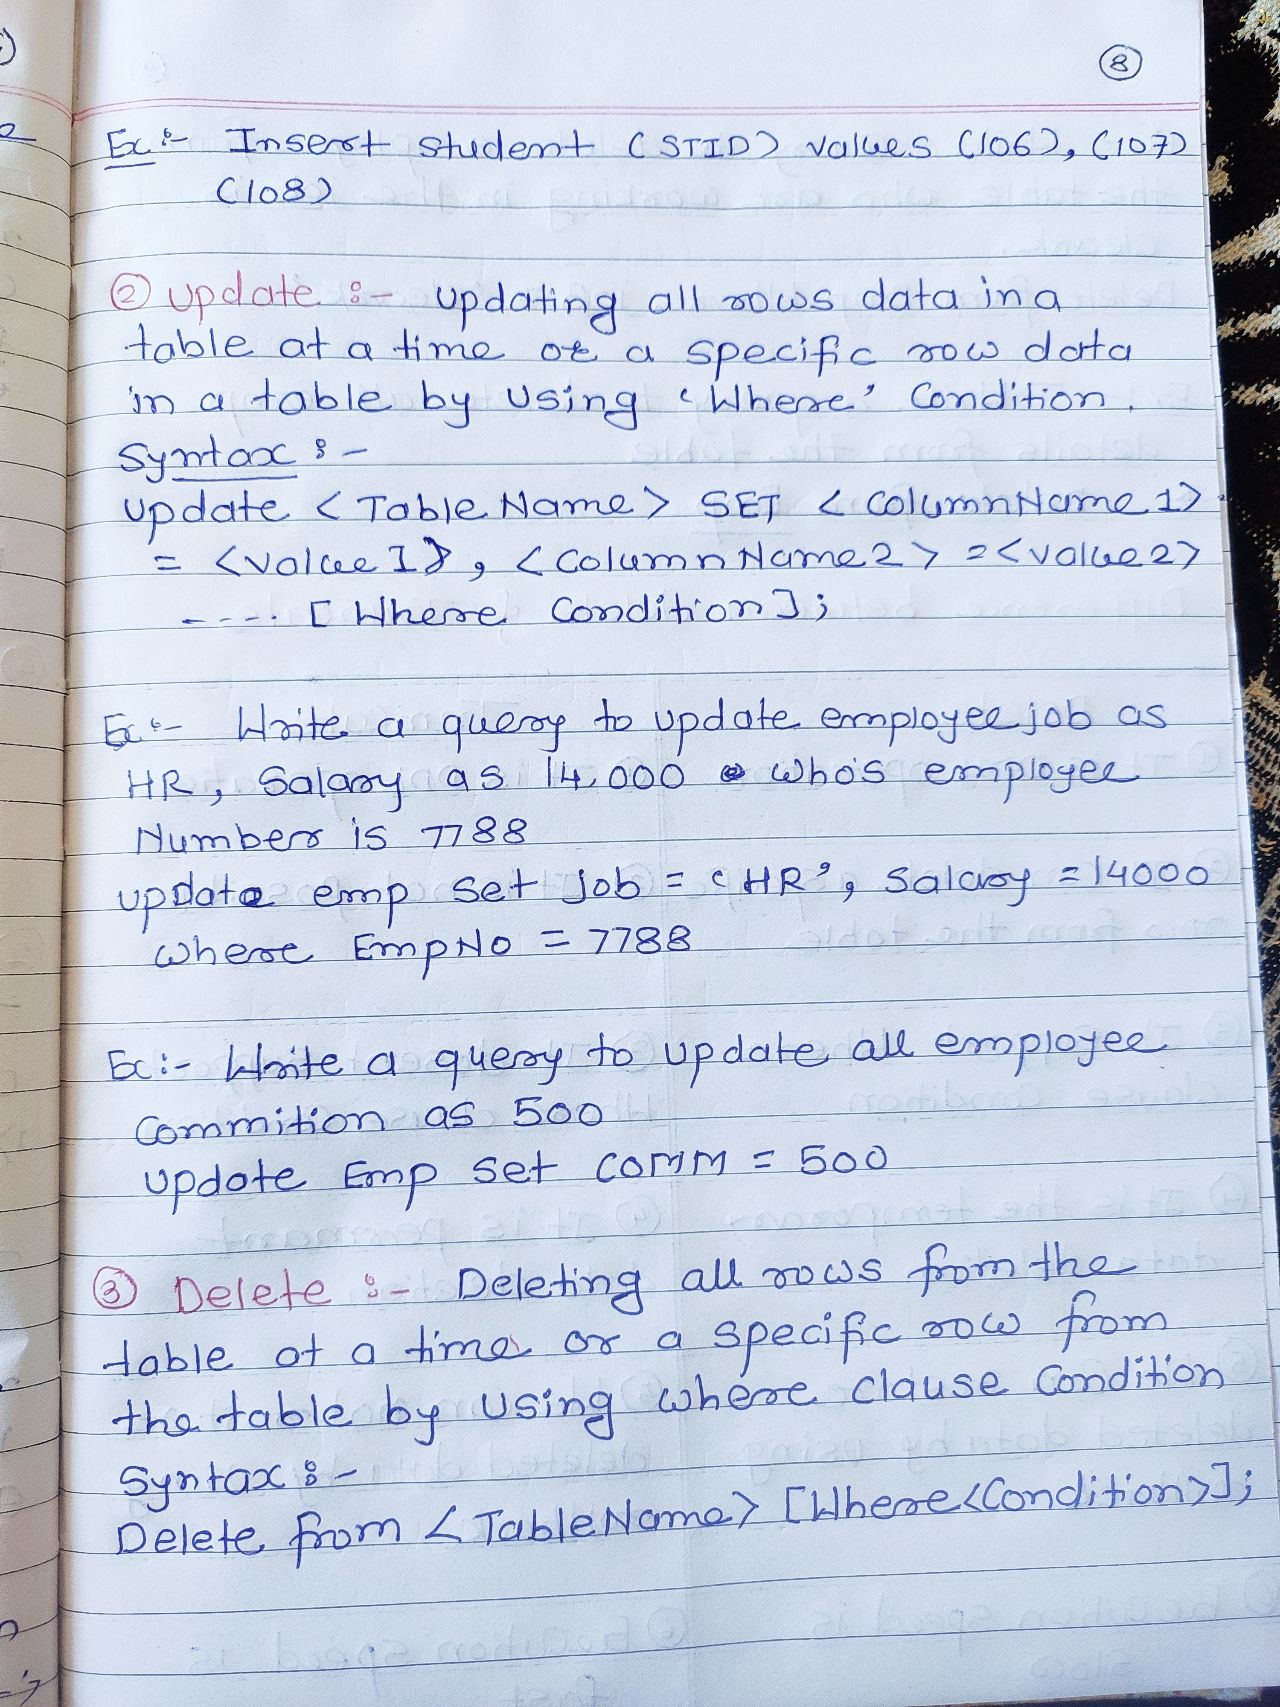 8
Ex:- Insert student (STID) values (106), (107)
(108)
② update :- updating all rows data in a
table at a time or a specific row data
in a table by using 'Where' Condition.
Syntax :-
update <Table Name> SET <ColumnName 1>
= <value 1>, <Column Name 2> = <value 2>
----. [Where Condition];
Ex:- Write a query to update employee job as
HR, Salary as 14,000 who's employee
Number is 7788
update emp set job = 'HR', Salary = 14000
where EmpNo = 7788
Ex:- Write a query to update all employee
Commition as 500
update Emp set COMM = 500
③ Delete :- Deleting all rows from the
table at a time or a specific row from
the table by using where clause Condition
Syntax :-
Delete from <TableName> [Where<Condition>];